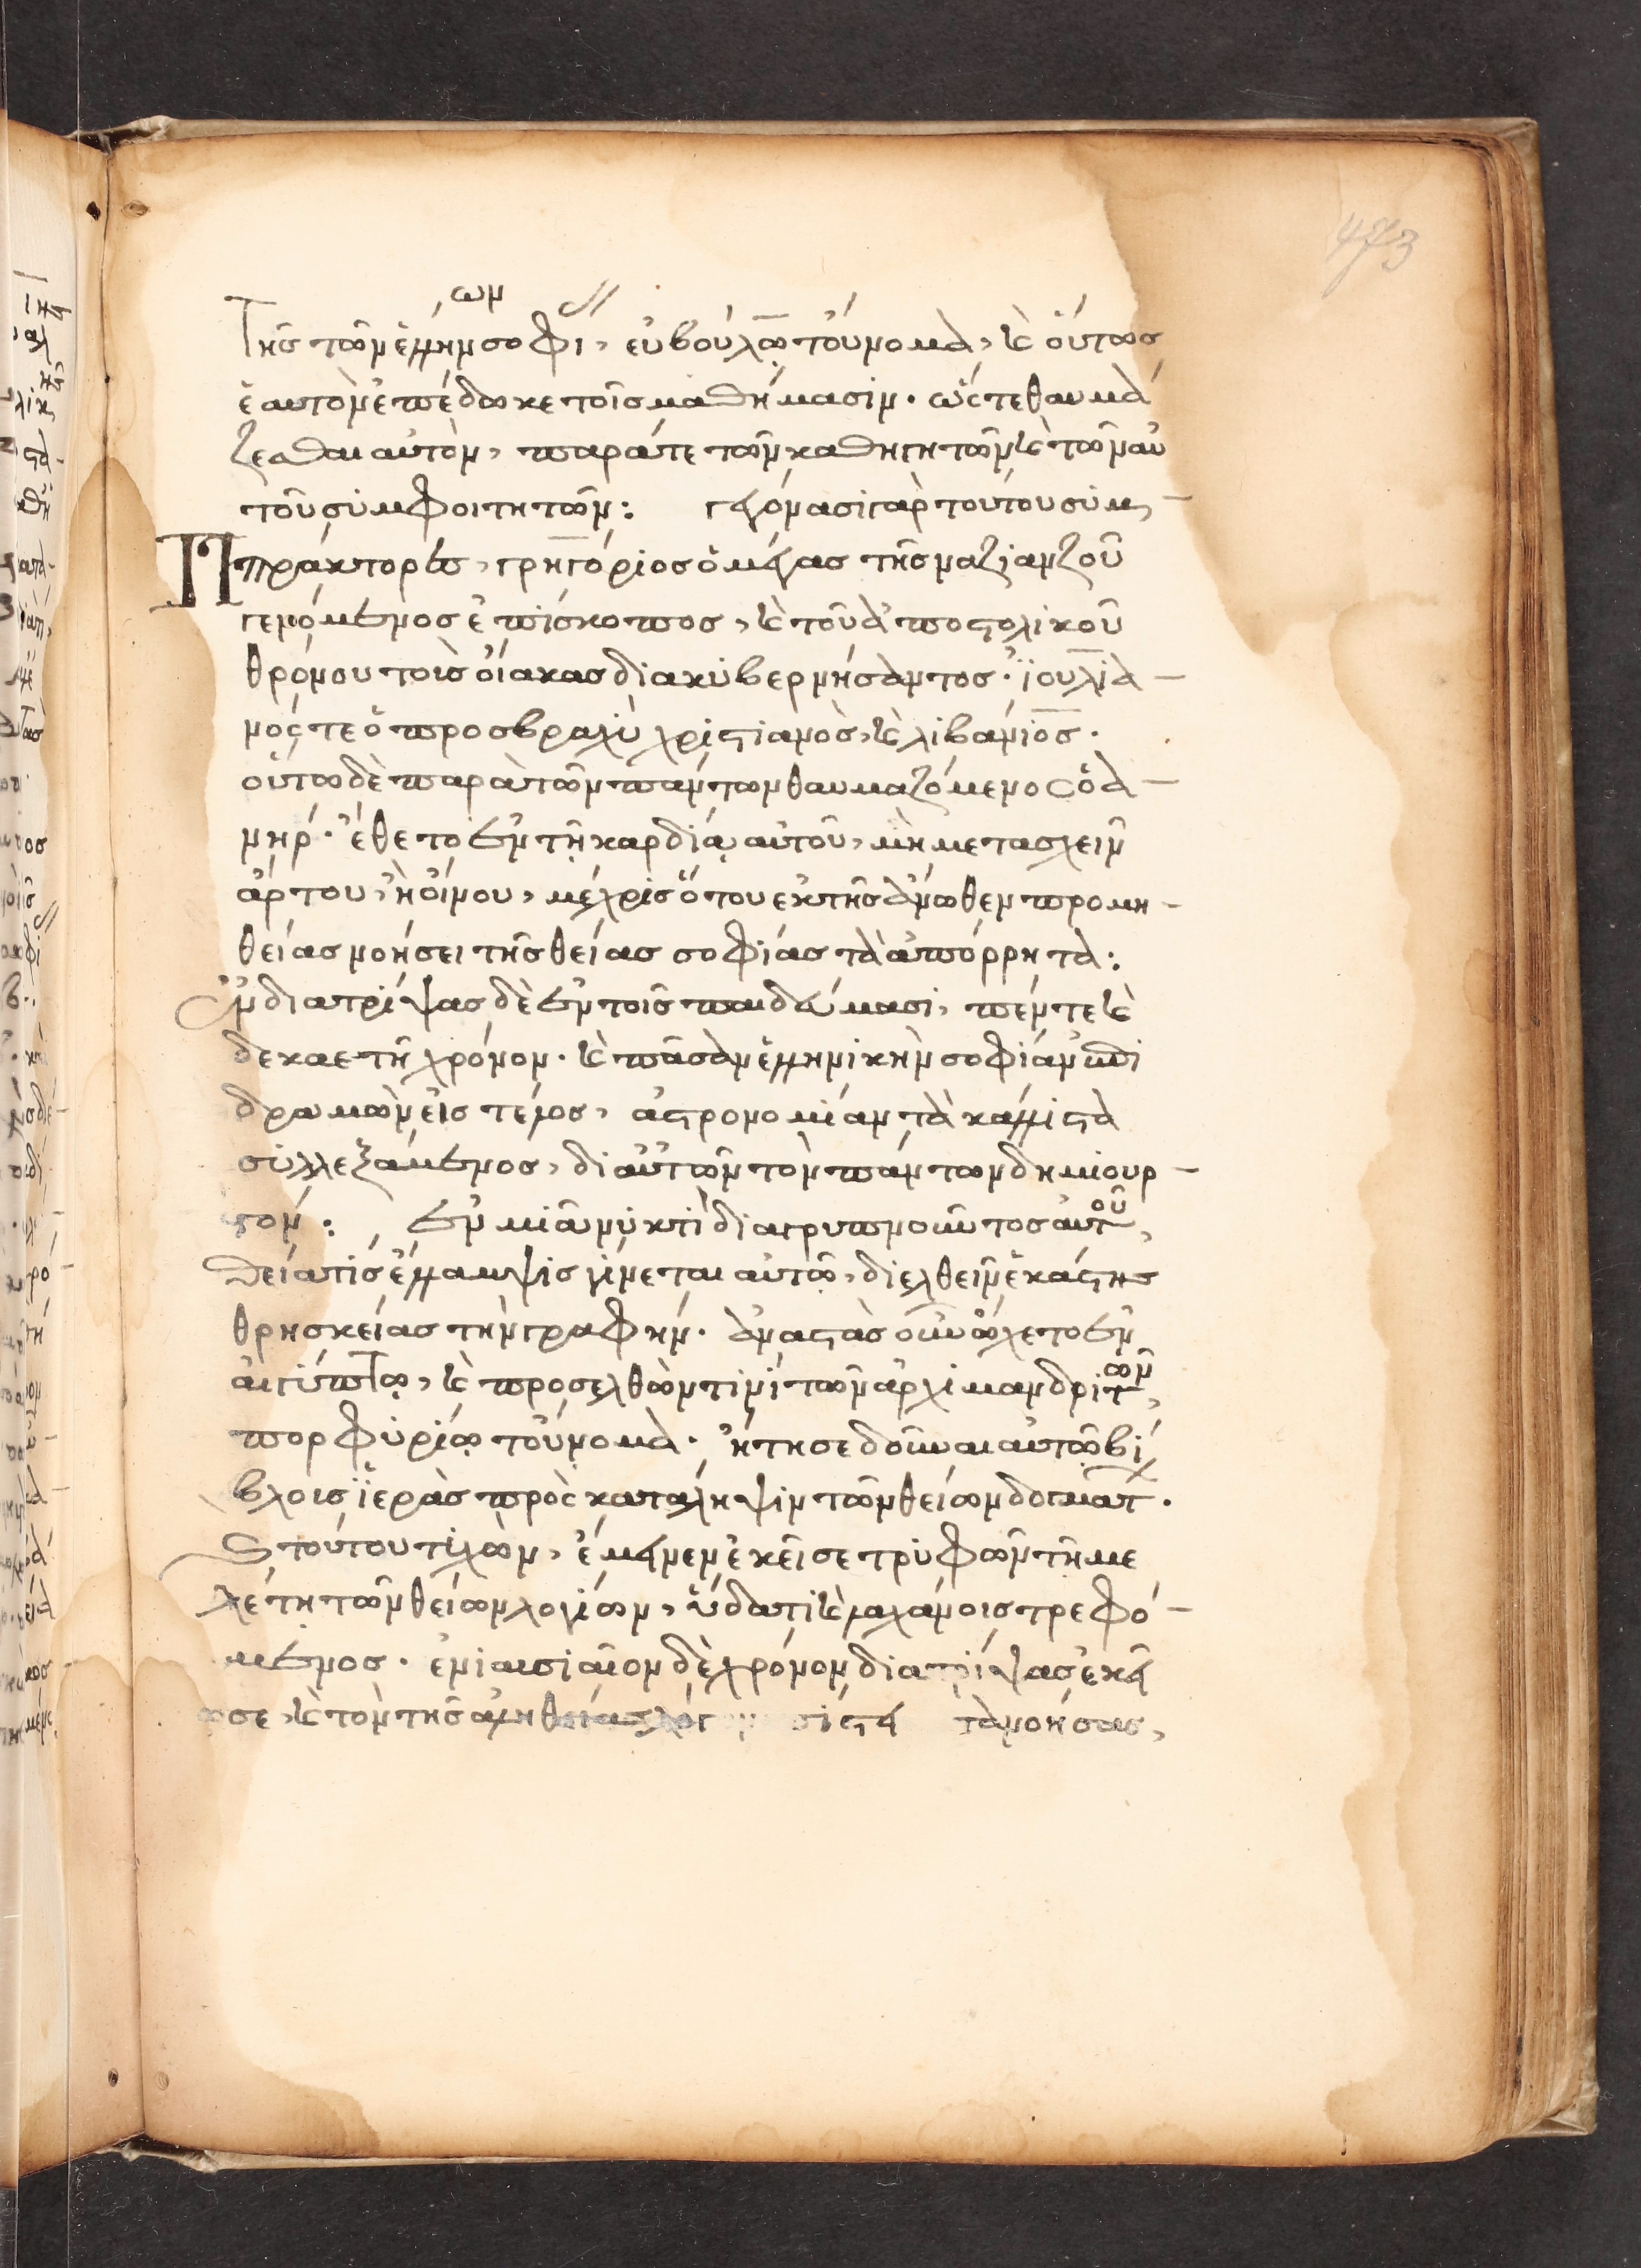 473
Τῆς τῶν ἑλλήνων σοφί, εὐβούλω τοὔνομα, κ οὕτως
ἑαυτὸν ἐπέδωκε τοῖς μαθήμασιν. ὥστε θαυμά
ζεσθαι αὐτὸν, παρά τε τῶν καθηγητῶν κ τῶν αὐ
τοῦ συμφοιτητῶν: γεγόνασι γὰρ τούτου συμ
πράκτορες, γρηγόριος ὁ μέγας τῆς ναζιανζοῦ
γενόμενος ἐπίσκοπος, κ τοῦ ἀποστολικοῦ
θρόνου τοὺς οἴακας διακυβερνήσαντος. ἰουλια
νός τε ὁ προσβραχὺ χριστιανὸς, κ λιβάνιος.
οὕτω δὲ παρὰ τῶν πάντων θαυμαζόμενος ὁ ἀ
νήρ. ἔθετο ἐν τῇ καρδίᾳ αὐτοῦ, μὴ μετασχεῖν
ἄρτου, ἢ οἴνου, μέχρις ὅτου ἐκ τῆς ἄνωθεν προμη
θείας νοήσει τῆς θείας σοφίας τὰ ἀπόρρητα:
Ἐνδιατρίψας δὲ ἐν τοῖς παιδεύμασι, πέντε κ
δεκαετῆ χρόνον. κ πᾶσαν ἑλληνικὴν σοφίαν ἐπι
δραμὼν εἰς τέλος, ἀστρονομίαν τὰ κάλλιστα
συλλεξάμενος, δι αὐτῶν τὸν πάντων δημιουρ
γόν: ἐν μιᾷ νυκτὶ διαγρυπνοῦντος αὐτοῦ,
θεία τις ἔλλαμψις γίνεται αὐτῷ, διελθεῖν ἑκάστης
θρησκείας τὴν γραφήν. ἀναστὰς οὖν ᾤχετο ἐν
αἰγύπτῳ, κ προσελθών τινι τῶν ἀρχιμανδριτῶν,
πορφυρίῳ τοὔνομα. ἤτησε δοῦναι αὐτῷ βί
βλους ἱερὰς πρὸς κατάληψιν τῶν θείων δογμάτ.
Ὁ τούτου τυχὼν, ἔμεινεν ἐκεῖσε τρυφῶν τῇ με
λέτῃ τῶν θείων λογίων, ὕδατι κ λαχάνοις τρεφό
μενος. ἐνιαυσιαῖον δὲ χρόνον διατρίψας ἐκεῖ
σε, κ τὸν τῆς ἀληθείας λόγ νοήσας,